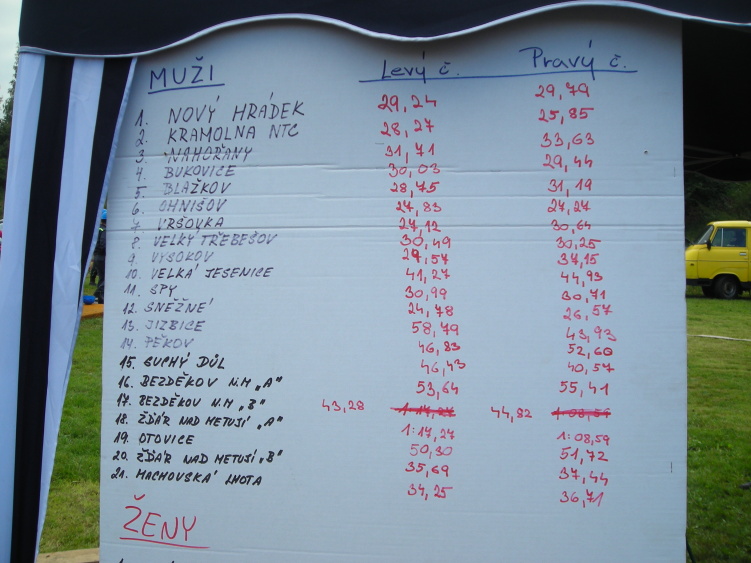 MUŽI Levý č. Pravý č.
1. NOVÝ HRÁDEK 29,24 29,79
2. KRAMOLNA NTC 28,27 25,85
3. NAHOŘANY 31,71 33,63
4. BUKOVICE 30,03 29,44
5. BLAŽKOV 28,75 31,19
6. OHNIŠOV 27,83 27,27
7. VRŠOVKA 27,12 30,64
8. VELKÝ TŘEBEŠOV 30,49 30,25
9. VYSOKOV 29,57 37,15
10. VELKÁ JESENICE 41,27 44,93
11. SPY 30,99 30,71
12. SNĚŽNÉ 24,78 26,57
13. JIZBICE 58,79 43,93
14. PĚKOV 46,83 52,60
15. SUCHÝ DŮL 46,43 40,57
16. BEZDĚKOV N.M „A" 53,64 55,41
17. BEZDĚKOV N.M „B" 43,28 1:17,27 44,82 1:08,59
18. ŽĎÁR NAD METUJÍ „A" 1:17,27 1:08,59
19. OTOVICE 50,30 51,72
20. ŽĎÁR NAD METUJÍ „B" 35,69 37,44
21. MACHOVSKÁ LHOTA 34,25 36,71
ŽENY